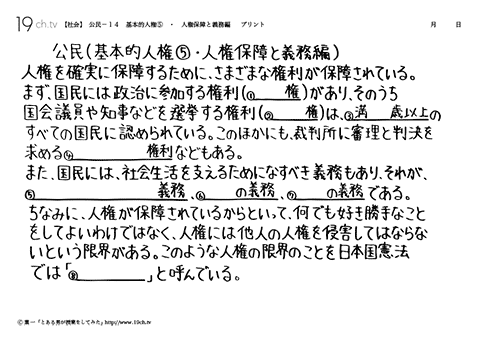 19ch.tv 【社会】 公民－14 基本的人権⑤ ・ 人権保障と義務編 プリント 月 日
公民(基本的人権⑤・人権保障と義務編)
人権を確実に保障するために、さまざまな権利が保障されている。
まず、国民には政治に参加する権利(① 権)があり、そのうち
国会議員や知事などを選挙する権利(② 権)は、③満 歳以上の
すべての国民に認められている。このほかにも、裁判所に審理と判決を
求める④ 権利などもある。
また、国民には、社会生活を支えるためになすべき義務もあり、それが、
⑤ 義務、⑥ の義務、⑦ の義務である。
ちなみに、人権が保障されているからといって、何でも好き勝手なこと
をしてよいわけではなく、人権には他人の人権を侵害してはならな
いという限界がある。このような人権の限界のことを日本国憲法
では「⑧ 」と呼んでいる。
© 葉一「とある男が授業をしてみた」http://www.19ch.tv